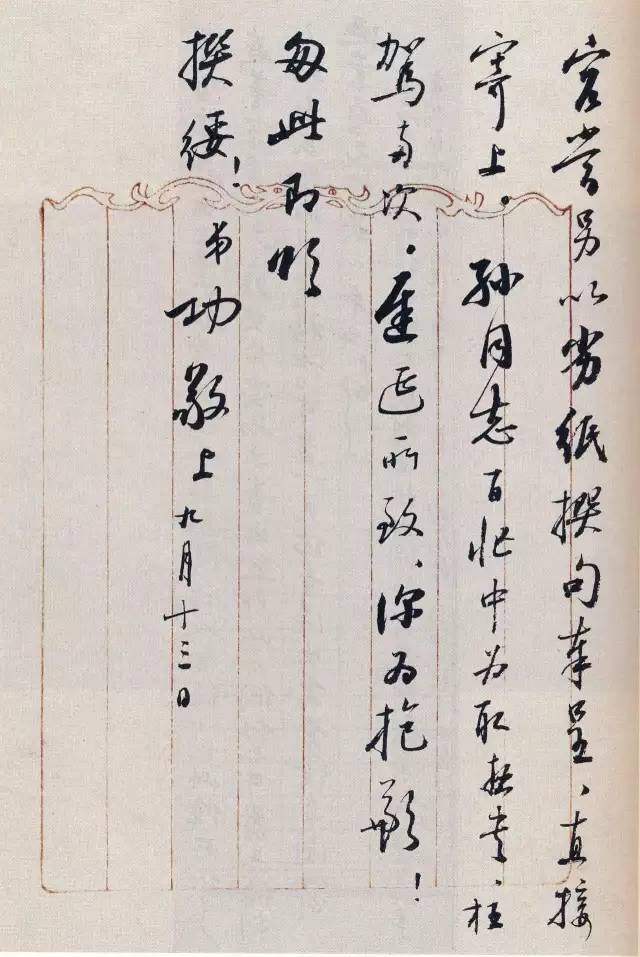 容当另以劣纸撰句奉呈、直接
寄上。孙同志百忙中为取拙书、枉
驾多次，迁延所致、深为抱歉！
匆此即颂
撰绥！
弟功敬上九月十三日